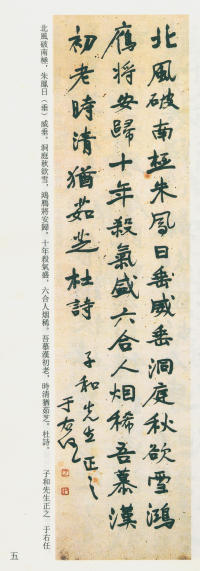 北風破南極朱鳳日垂威垂洞庭秋欲雪鴻
鴈將安歸十年殺氣盛六合人烟稀吾慕漢
初老時清猶茹芝杜詩
子和先生正之
于右任
北風破南極，朱鳳日（垂）威垂，洞庭秋欲雪，鴻鴈將安歸，十年殺氣盛，六合人烟稀，吾慕漢初老，時清猶茹芝。杜詩。　子和先生正之　于右任
五